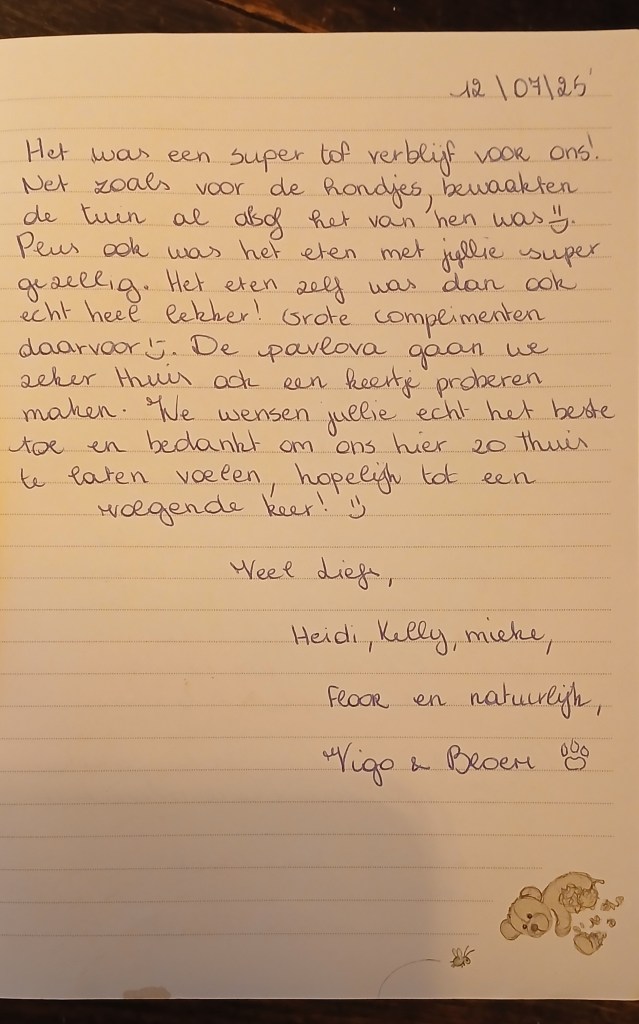 12/07/25
Het was een super tof verblijf voor ons!
Net zoals voor de hondjes, bewaakten
de tuin al alsof het van hen was☺.
Plus ook was het eten met jullie super
gezellig. Het eten zelf was dan ook
echt heel lekker! Grote complimenten
daarvoor☺. De pavlova gaan we
zeker thuis ook een keertje proberen
maken. We wensen jullie echt het beste
toe en bedankt om ons hier zo thuis
te laten voelen, hopelijk tot een
volgende keer! ☺
Veel liefs,
Heidi, Kelly, mieke,
Floor en natuurlijk,
Vigo & Bloem